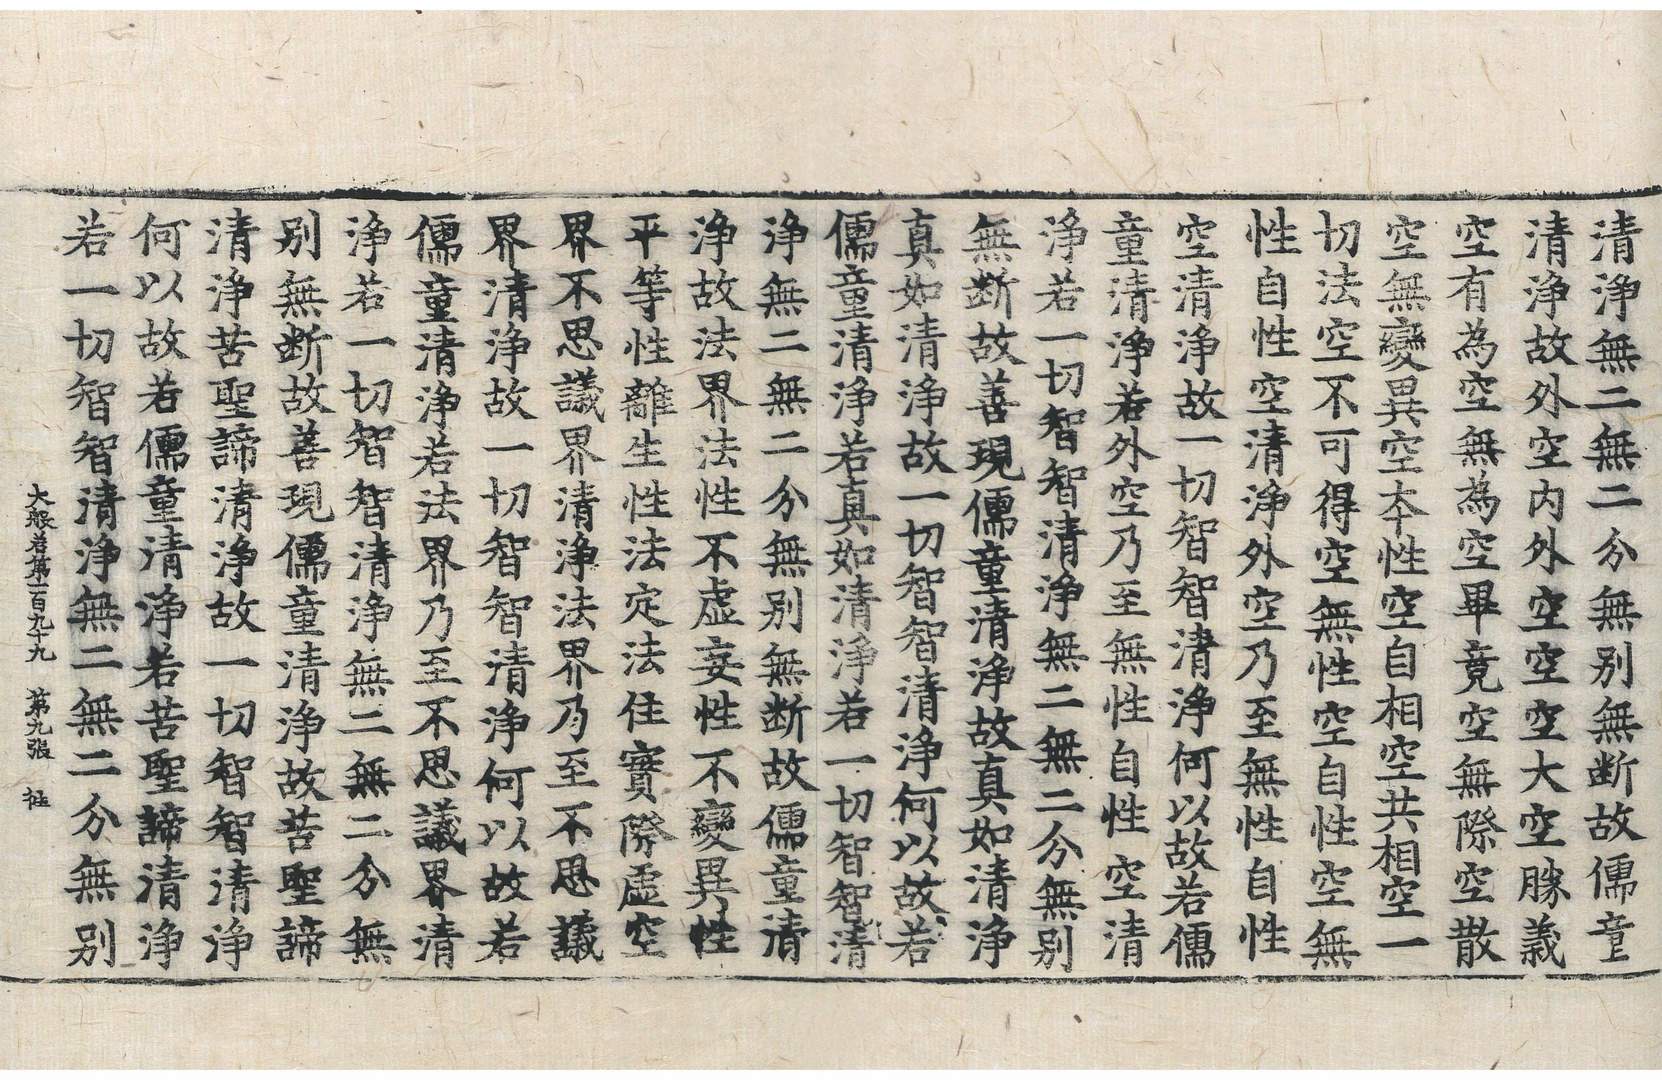 清淨無二無二分無別無断故儒童
清淨故外空内外空空空大空勝義
空有為空無為空畢竟空無際空散
空無變異空本性空自相空共相空一
切法空不可得空無性空自性空無
性自性空清淨外空乃至無性自性
空清淨故一切智智清淨何以故若儒
童清淨若外空乃至無性自性空清
淨若一切智智清淨無二無二分無別
無断故善現儒童清淨故真如清淨
真如清淨故一切智智清淨何以故若
儒童清淨若真如清淨若一切智智清
淨無二無二分無別無断故儒童清
淨故法界法性不虛妄性不變異性
平等性離生性法定法住實際虛空
界不思議界清淨法界乃至不思議
界清淨故一切智智清淨何以故若
儒童清淨若法界乃至不思議界清
淨若一切智智清淨無二無二分無
別無断故善現儒童清淨故苦聖諦
清淨苦聖諦清淨故一切智智清淨
何以故若儒童清淨若苦聖諦清淨
若一切智智清淨無二無二分無別
大般若第一百九十九 第九張